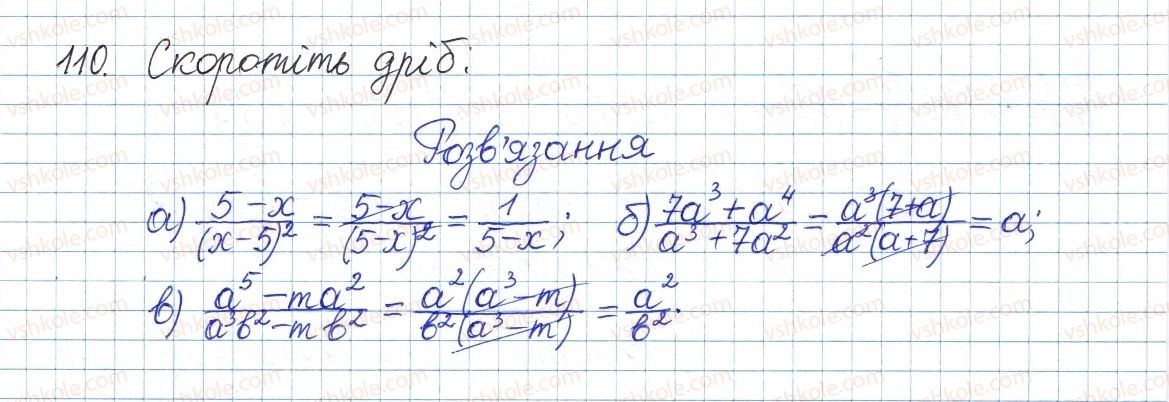 110. Скоротіть дріб:
Розв'язання
а) (5-x)/(x-5)² = (5-x)/(5-x)² = 1/(5-x); б) (7a³+a⁴)/(a³+7a²) = a³(7+a)/a²(a+7) = a;
в) (a⁵-ma²)/(a³b²-mb²) = a²(a³-m)/b²(a³-m) = a²/b².